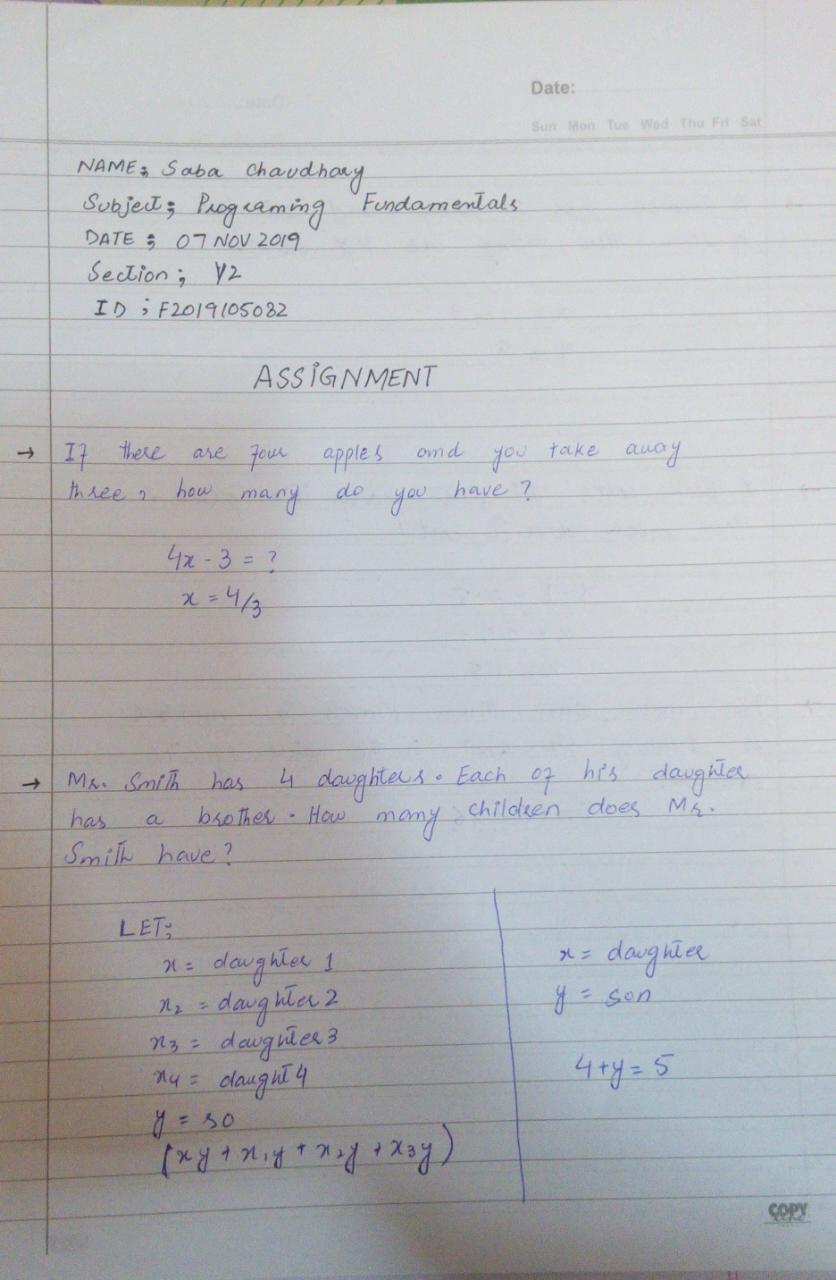 Date:
Sun Mon Tue Wed Thu Fri Sat
NAME; Saba Chaudhary
Subject; Programing Fundamentals
DATE ; 07 NOV 2019
Section ; Y2
ID ; F2019105082
ASSIGNMENT
→ If there are four apples and you take away
three, how many do you have?
4x - 3 = ?
x = 4/3
→ Mr. Smith has 4 daughters. Each of his daughter
has a brother. How many children does Mr.
Smith have?
LET;
x = daughter 1
x₂ = daughter 2
x₃ = daughter 3
x₄ = daught 4
y = so
(xy + x₁y + x₂y + x₃y)
x = daughter
y = son
4+y = 5
COPY